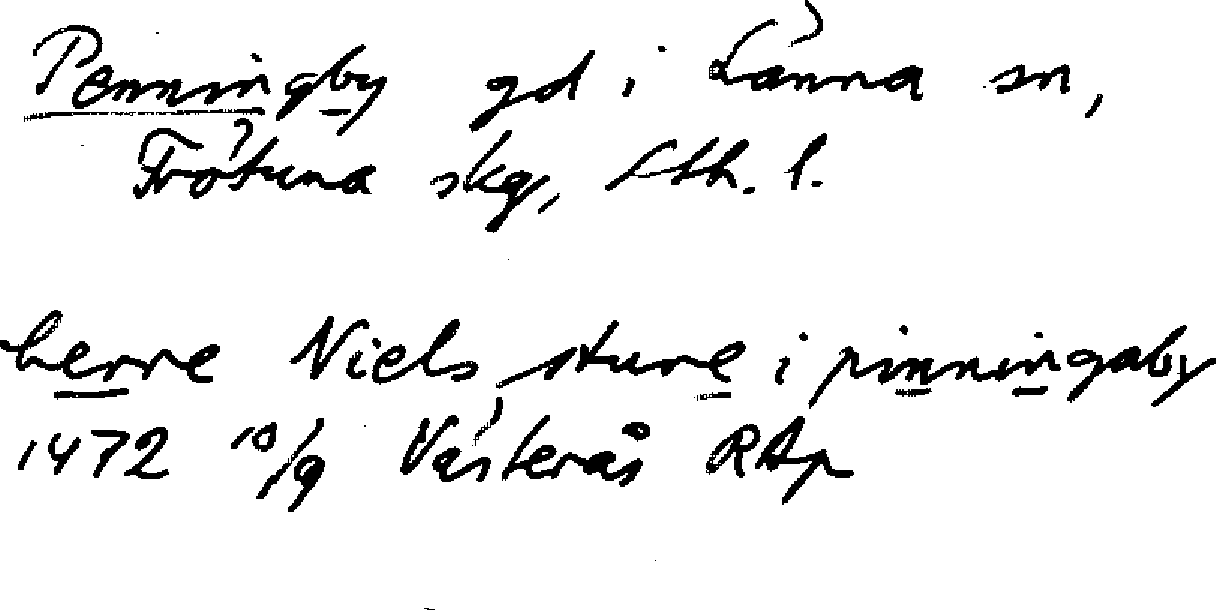 Penningby gd i Länna sn,
Frötuna skg, Sth. l.
herre Niels sture i pinningaby
1472 10/9 Västerås RAp